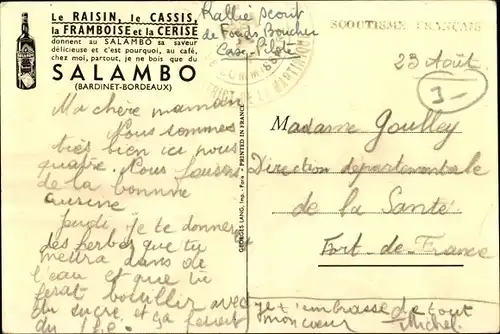 Le RAISIN, le CASSIS,
la FRAMBOISE et la CERISE
donnent au SALAMBO sa saveur
délicieuse et c'est pourquoi, au café,
chez moi, partout, je ne bois que du
SALAMBO
(BARDINET-BORDEAUX)
Rallié scout
de Fonds Boucher
Case-Pilote
SCOUTISME FRANÇAIS
23 Août
3-
Ma chère maman
Nous sommes
très bien ici nous
quatre. Nous faisons
de la bonne
cuisine
Jeudi je te donnerai
des herbes que tu
mettra dans de
l'eau et que tu
ferat bouillir avec
du sucre, et ça feront
du thé.
GEORGES LANG, Imp. - Paris • PRINTED IN FRANCE
Madame Goulley
Direction départementale
de la Santé
Fort-de-France
Je t'embrasse de tout
mon coeur Michel